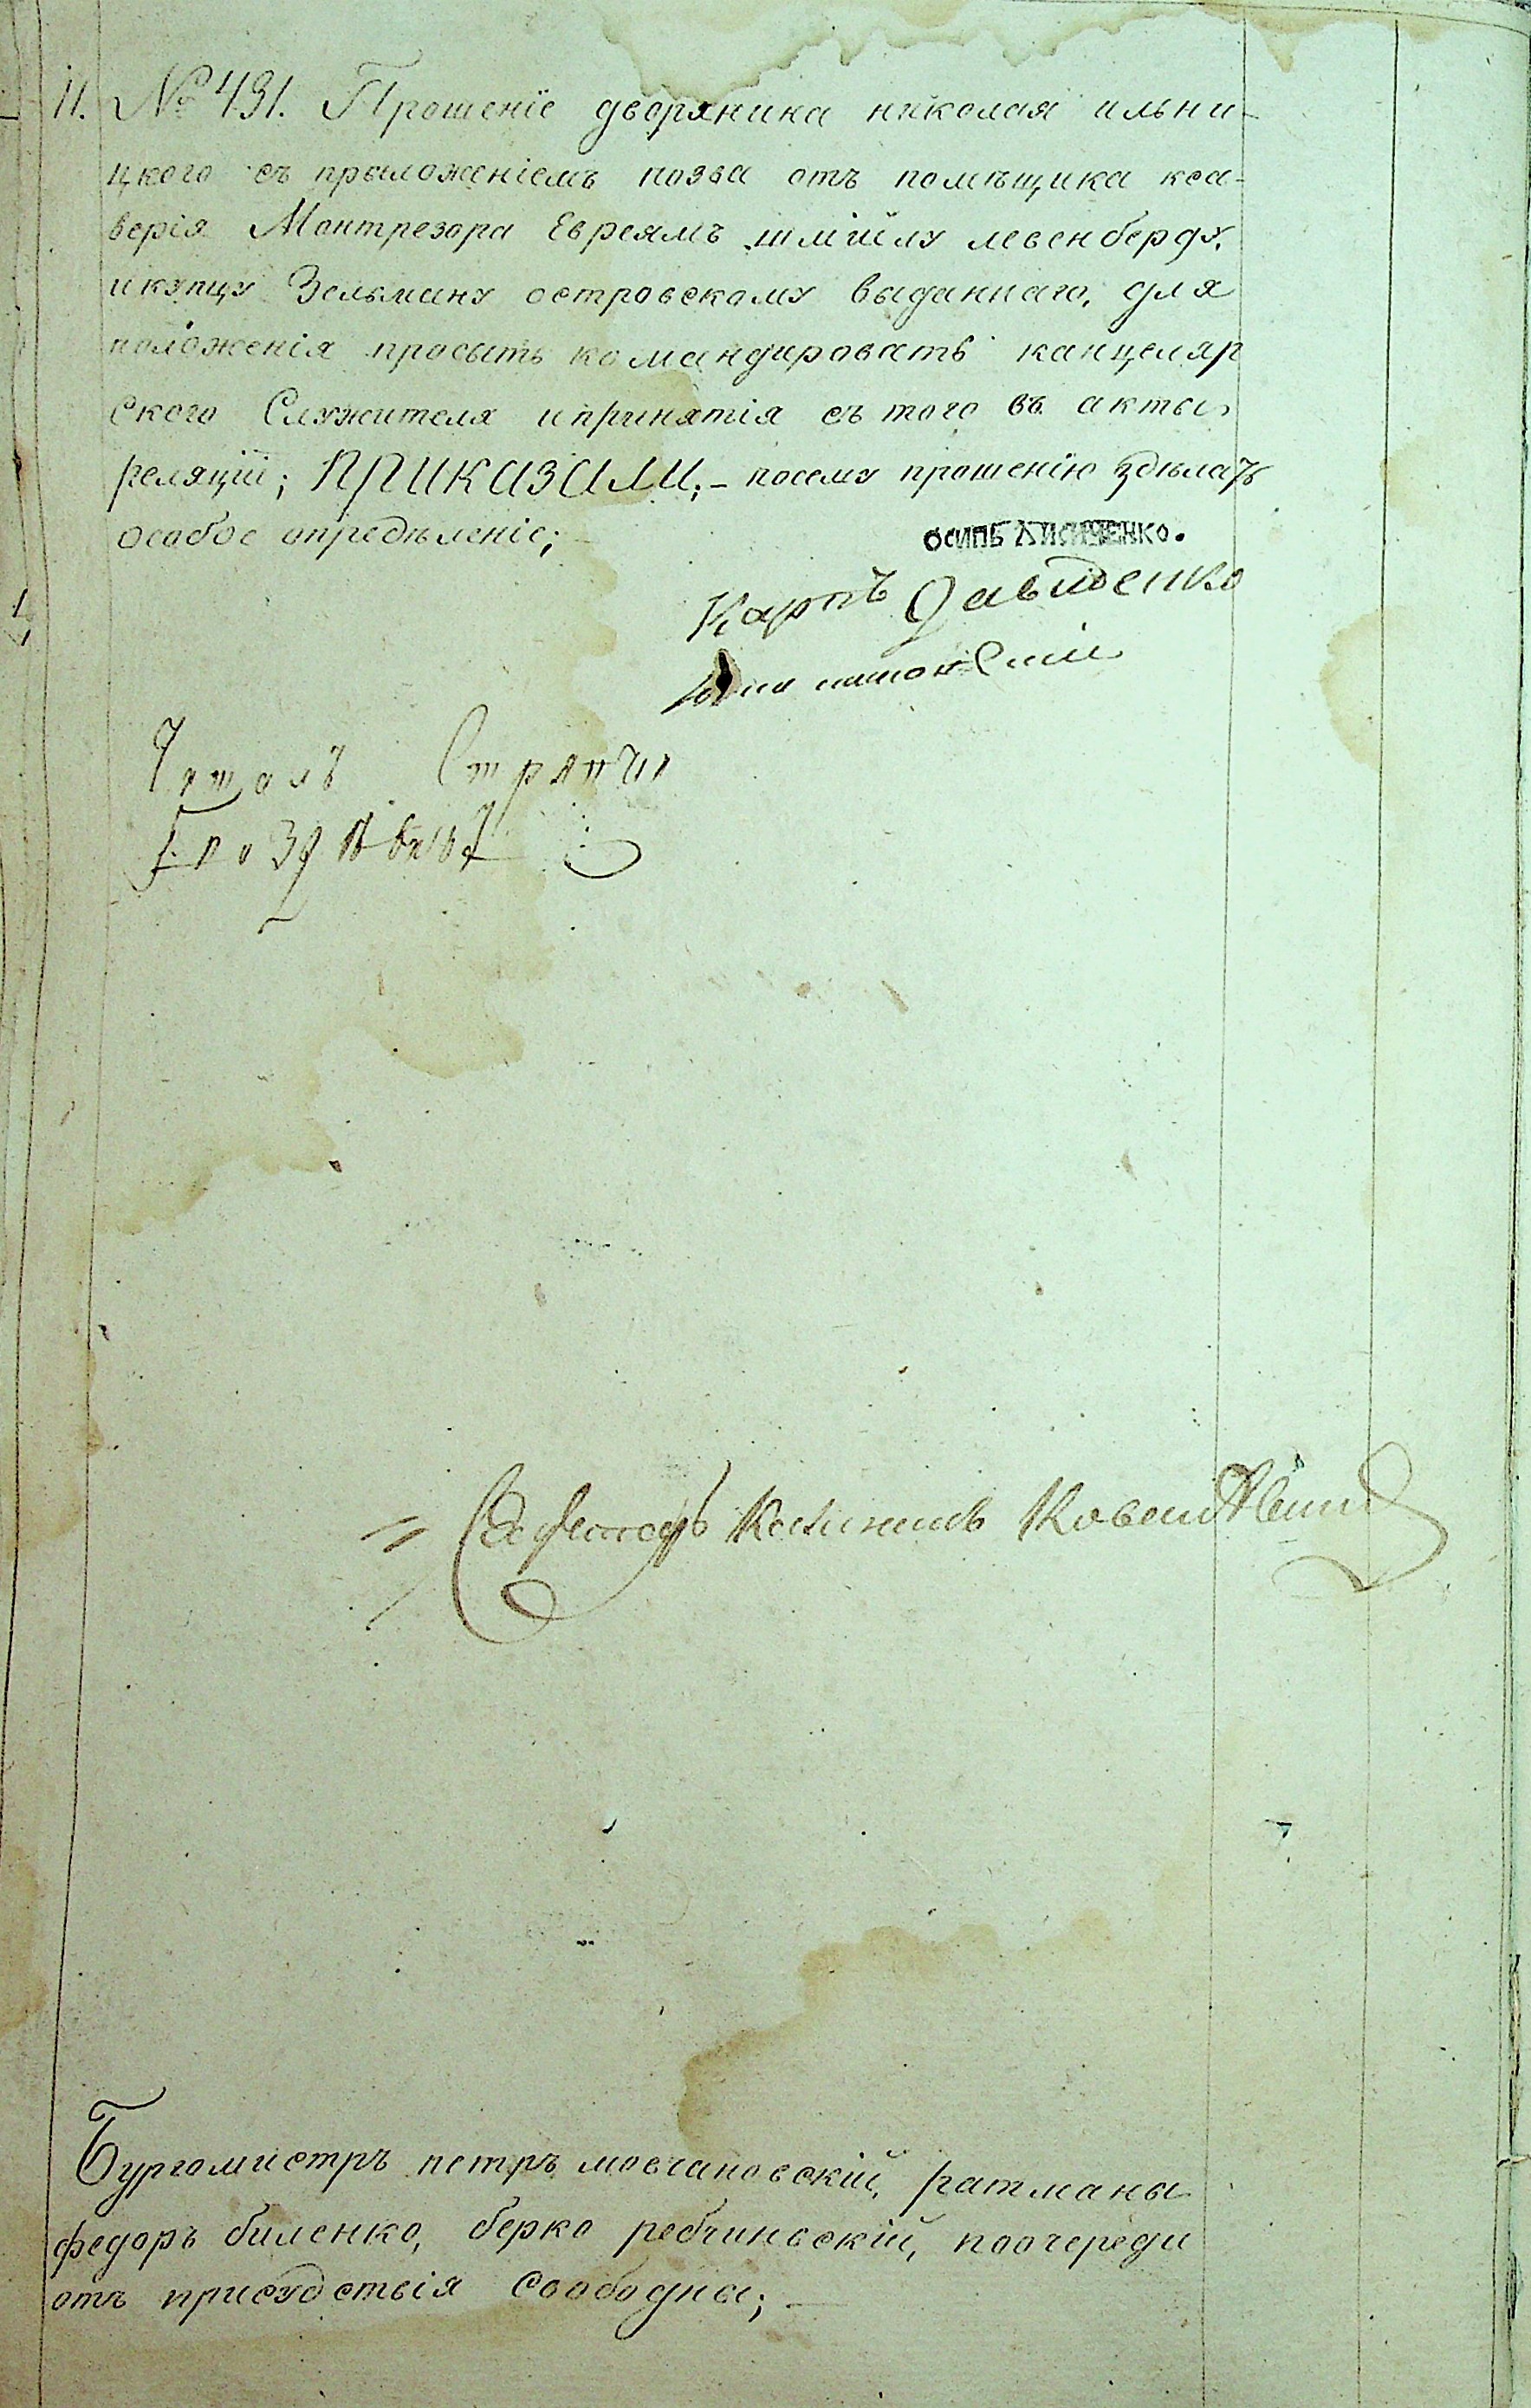 11. № 431. Прошеніе дворянина николая ильни-
цкого съ прыложеніемъ позва отъ помѣщика кса-
верія Монтрезора Евреямъ шмійлу левенбергу,
и купцу Зельману островскому выданнаго, для
положенія просыть командировать канцеляр
ского Служителя и принятія съ того въ акты
реляціи; ПРИКАЗАЛИ;- посему прошенію здѣлать
особое опредѣленіе;
осипъ Лисиченко.
Карпъ Давиденко
Читалъ Стряпчи
Секретарь Ковал
Бургомистръ петръ мовчановскій, ратманы
федоръ биленко, берко ребчинскій, поочереди
отъ присудствія Свободны;-